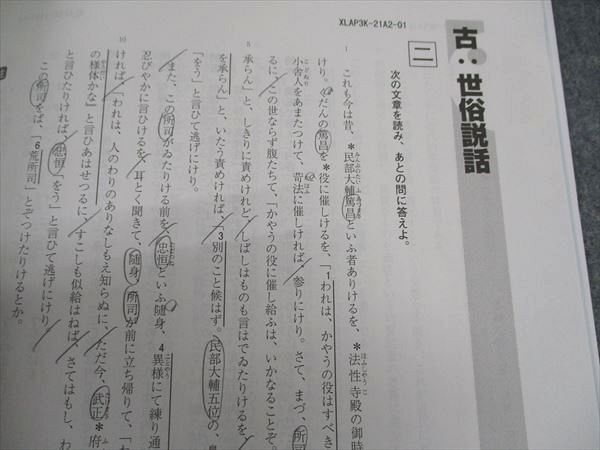 XLAP3K-21A2-01
古：世俗説話
二
次の文章を読み、あとの問に答えよ。
1 これも今は昔、＊民部大輔篤昌といふ者ありけるを、＊法性寺殿の御時
みんぶのたいふあつまさ
ほふしやうじ
けり。くだんの篤昌を＊役に催しけるを、「1われは、かやうの役はすべき
小舎人をあまたつけて、苛法に催しければ、参りにけり。さて、まづ、所司
こどねり
るに、この世ならず腹たちて、「かやうの役に催し給ふは、いかなることぞ。
5 承らん」と、しきりに責めけれど、しばしはものも言はでゐたりけるを
を承らん」と、いたう責めければ、「3別のこと候はず。民部大輔五位の、
「をう」と言ひて逃げにけり。
また、この所司がゐたりける前を、忠恒といふ随身、4異様にて練り通
忍びやかに言ひけるを、耳とく聞きて、随身、所司が前に立ち帰りて、「
10 ければ、「われは、人のわりのありなしもえ知らぬに、ただ今、武正＊府
の様体かな」と言ひあはせつるに、すこしも似給はねば、さてはもし、わ
と言ひたりければ、忠恒「をう」と言ひて逃げにけり
この所司をば、「6荒所司」とぞつけたりけるとか。